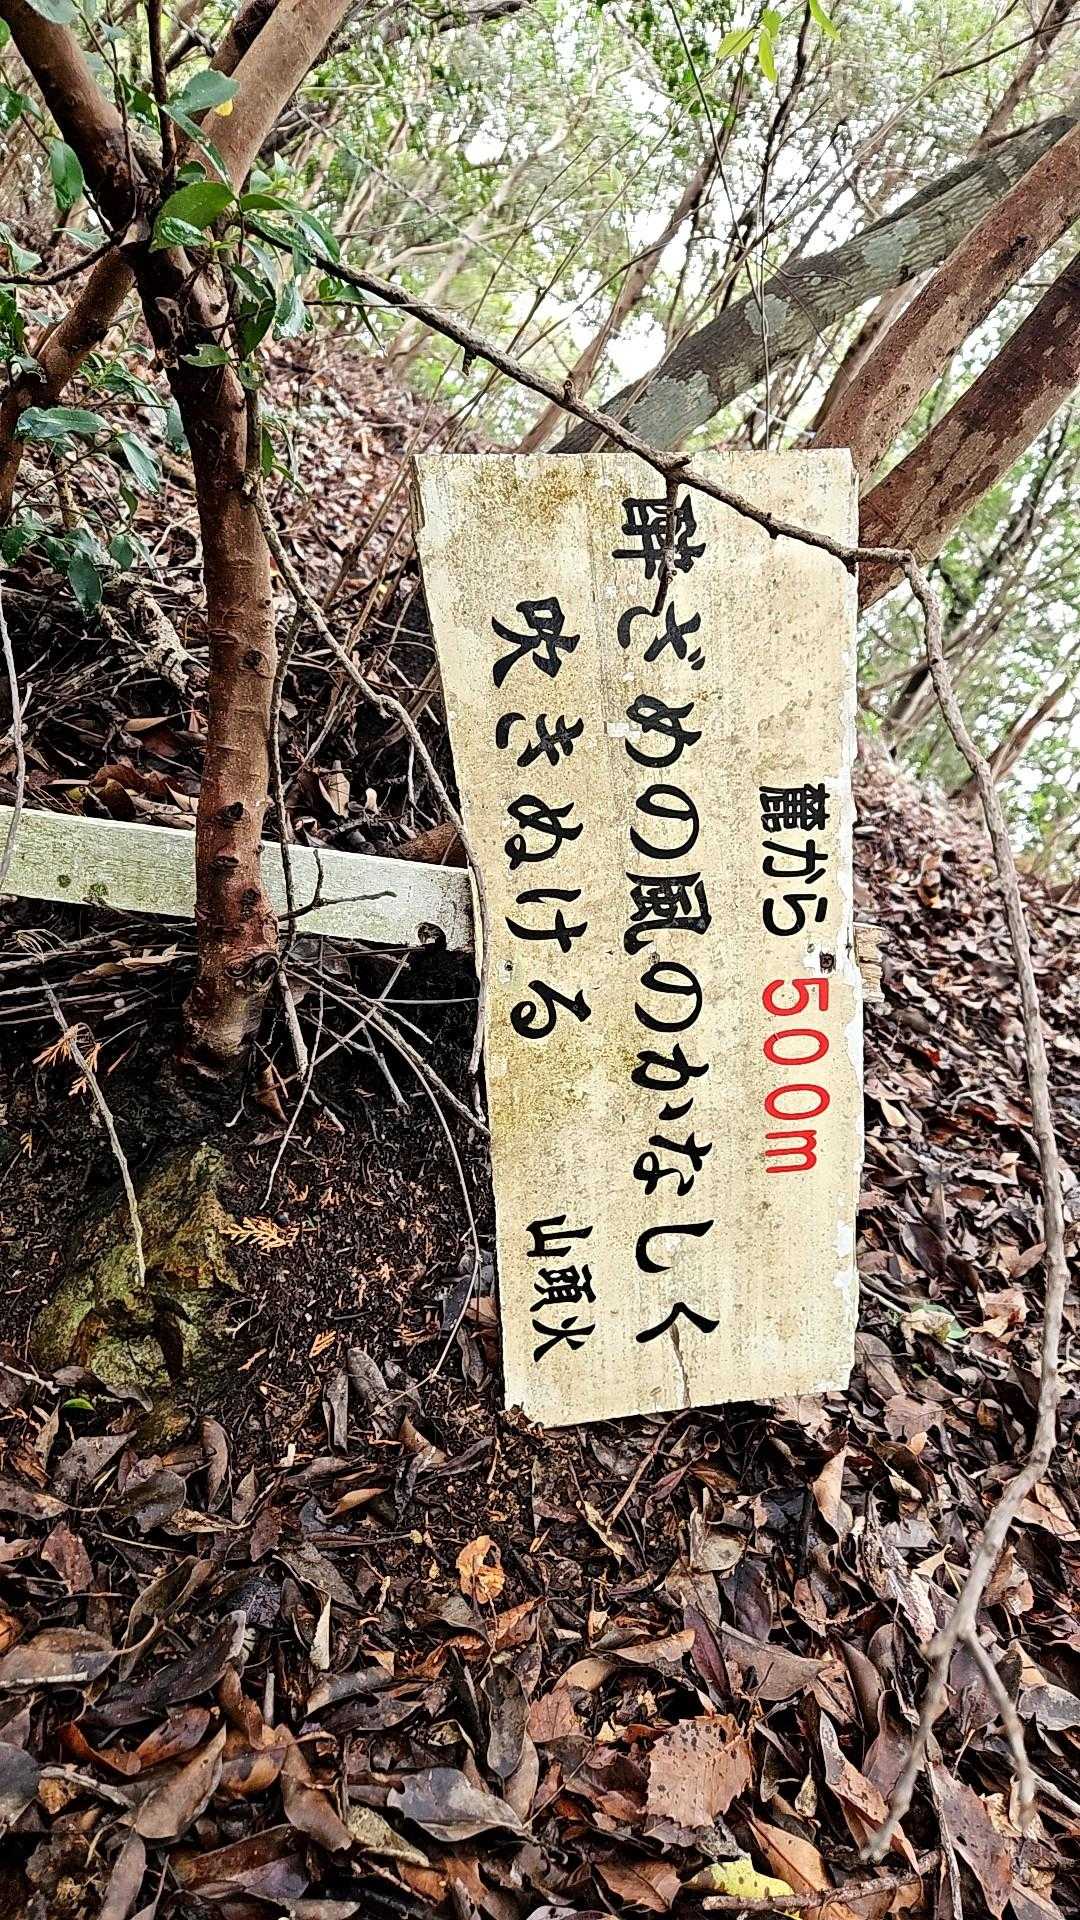 麓から 500m
酔ざめの風のかなしく
吹きぬける
山頭火